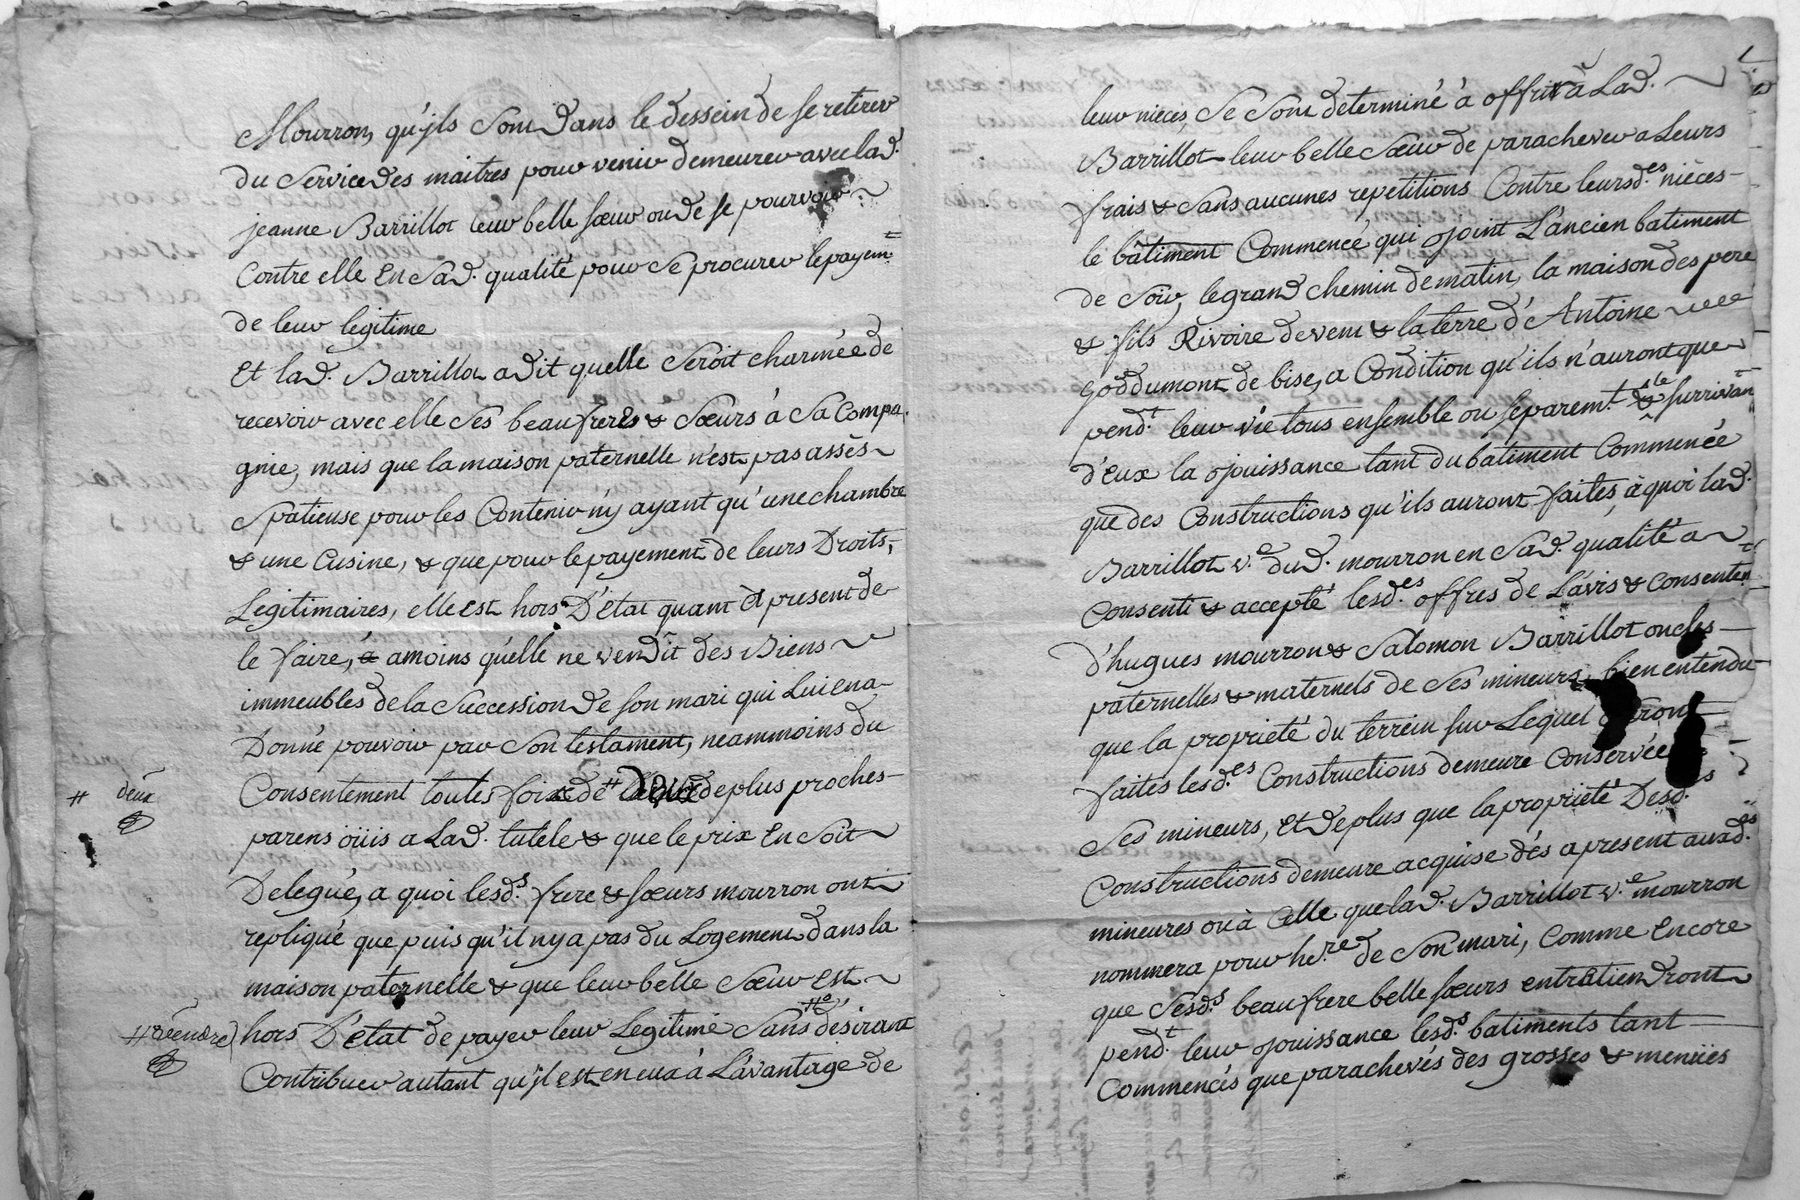 Mourron, qu'ils Sont dans le dessein de se retirer
du Service des maitres pour venir demeurer avec lad.
jeanne Barrillot leur belle sœur ou de se pourvoir
Contre elle En Sad. qualité pour Se procurer le payemt
de leur legitime
Et lad. Barrillot a dit quelle Seroit charmée de
recevoir avec elle Ses beaufreres & Sœurs à Sa Compa-
gnie, mais que la maison paternelle n'est pas assés
Spatieuse pour les Contenir n'y ayant qu'une chambre
& une Cuisine, & que pour le payement de leurs Droits
Legitimaires, elle est hors D'Etat quant à present de
le faire, à amoins qu'elle ne vendît des Biens
immeubles de la Succession de Son mari qui Lui en a
Donné pouvoir par Son testament, neammoins du
Consentement toutes fois de # deplus proches
# deux
parens oüis a Lad. tutele & que le prix En Soit
Delegué, a quoi lesds. frere & sœurs mourron ont
repliqué que puis qu'il ny a pas du Logement dans la
maison paternelle & que leur belle Sœur Est
hors D'état de payer leur Legitime Sans # désirant
# vendre
Contribuer autant qu'il est en eux à L'avantage de
leur nieces, Se Sont determiné à offrir à Lad.
Barrillot leur belle Sœur de parachever a Leurs
frais & Sans aucunes repetitions Contre leursd.es nièces
le bâtiment Commencé qui joint L'ancien batiment
de Soir, le grand chemin de matin, la maison des pere
& fils Rivoire de vent & la terre d'Antoine
Goddumont de bise, a Condition qu'ils n'auront que
pend.t leur vie tous ensemble ou separem.t & le survivan
d'eux la jouissance tant du batiment Commencée
que des Constructions qu'ils auront faites, à quoi lad.
Barrillot v.e dud. mourron en Sad. qualité a
Consenti & accepté lesd.es offres de L'avis & Consentem
d'hugues mourron & Salomon Barrillot oncles
paternelles & maternels de Ses mineurs, bien entendu
que la proprieté du terrein sur Lequel Seront
faites lesd.es Constructions demeure Conservée
Ses mineurs, et deplus que la proprieté Desd.es
Constructions demeure acquise dés a present auxd.es
mineures ou à Celle que lad. Barrillot v.e mourron
nommera pour he.re de Son mari, Comme Encore
que Sesd.s beaufrere belle sœurs entretiendront
pend.t leur jouissance lesd.s batiments tant
Commencés que parachevés des grosses & menües